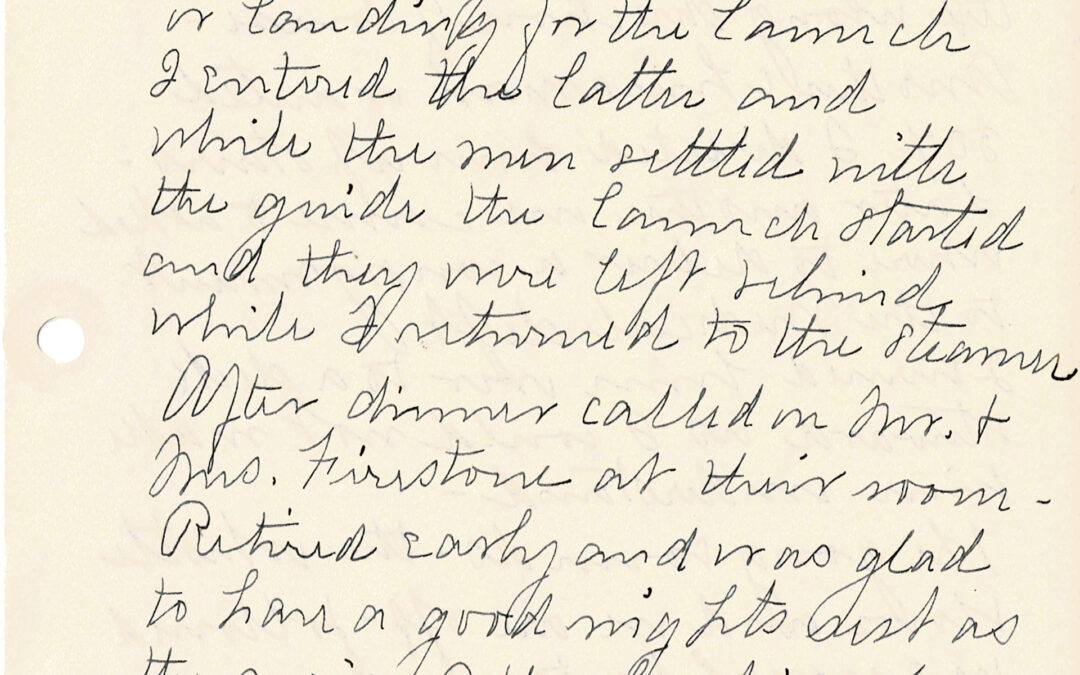 or landing for the launch
I entered the latter and
while the men settled with
the guide the launch started
and they were left behind
while I returned to the steamer
After dinner called on Mr. &
Mrs. Firestone at their room -
Retired early and was glad
to have a good nights rest as
the